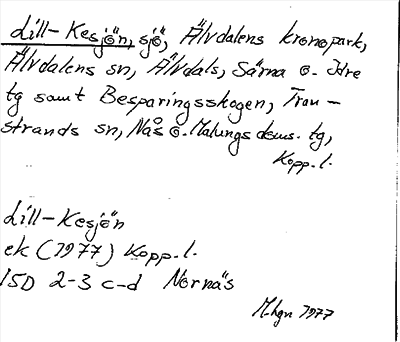 Lill-Kesjön, sjö, Älvdalens kronopark,
Älvdalens sn, Älvdals, Särna o. Idre
tg samt Besparingsskogen, Tran-
strands sn, Nås o. Malungs doms. tg,
Kopp. l.
Lill-Kesjön
ek (1977) Kopp. l.
15D 2-3 c-d Nornäs
M-hgn 1977